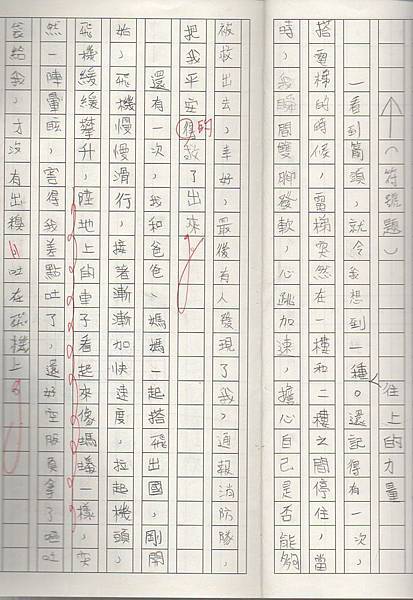 ↑（符號題）
一看到箭頭，就令我想到一種。還記得有一次，
往上的力量
搭電梯的時候，電梯突然在一樓和二樓之間停住，當
時，我瞬間雙腳發軟，心跳加速，擔心自己是否能夠
被救出去，幸好，最後有人發現了我，通報消防隊，
把我平安得救了出來。
的
還有一次，我和爸爸、媽媽一起搭飛出國，剛開
始，飛機慢慢滑行，接著漸漸加快速度，拉起機頭，
飛機緩緩攀升，陸地上的車子看起來像螞蟻一樣，突
然一陣暈眩，害得我差點吐了，還好空服員拿了嘔吐
袋給我，才沒有出糗吐在飛機上。